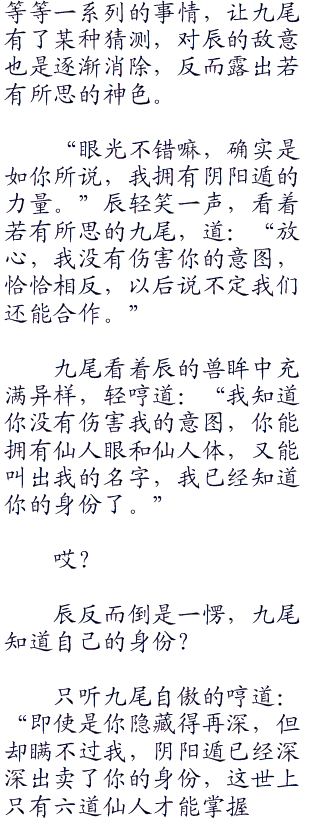 等等一系列的事情，让九尾
有了某种猜测，对辰的敌意
也是逐渐消除，反而露出若
有所思的神色。
“眼光不错嘛，确实是
如你所说，我拥有阴阳遁的
力量。”辰轻笑一声，看着
若有所思的九尾，道：“放
心，我没有伤害你的意图，
恰恰相反，以后说不定我们
还能合作。”
九尾看着辰的兽眸中充
满异样，轻哼道：“我知道
你没有伤害我的意图，你能
拥有仙人眼和仙人体，又能
叫出我的名字，我已经知道
你的身份了。”
哎？
辰反而倒是一愣，九尾
知道自己的身份？
只听九尾自傲的哼道：
“即使是你隐藏得再深，但
却瞒不过我，阴阳遁已经深
深出卖了你的身份，这世上
只有六道仙人才能掌握